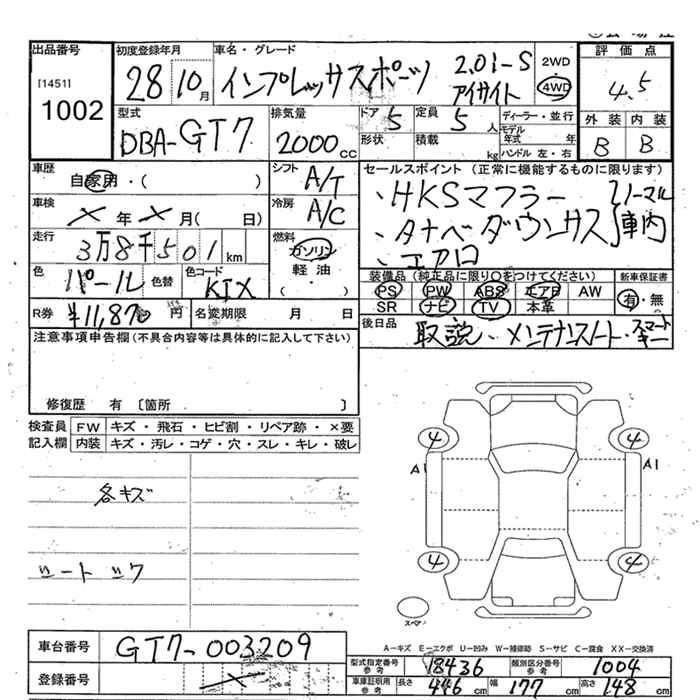 出品番号
[1451]
1002
初度登録年月
28 10月
車名・グレード
インプレッサスポーツ 2.0i-S
アイサイト
2WD
4WD
評価点
4.5
外装 内装
B B
型式
DBA-GT7
排気量
2000cc
ドア 5
形状
定員 5人
積載 kg
ディーラー・並行
モデル年式 年
ハンドル 左・右
車歴
自家用・( )
シフト
A/T
車検
× 年 × 月( 日)
冷房
A/C
走行
3万8千501km
燃料
ガソリン
軽油
( )
色
パール
色替
色コード
R券
¥11,870円
名変期限 月 日
セールスポイント(正常に機能するものに限ります)
、HKSマフラー
、タナベダウンサス
、エアロ
ノーマル
車内
装備品(純正品に限り○をつけてください)
PS PW ABS エアB AW
SR ナビ TV 本革
新車保証書
有・無
後日品
取説・メンテナンスノート・スマートキー
注意事項申告欄(不具合内容等は具体的に記入して下さい)
修復歴 有 〔箇所 〕
検査員記入欄
FW キズ・飛石・ヒビ割・リペア跡・×要
内装 キズ・汚レ・コゲ・穴・スレ・キレ・破レ
各キズ
シートスワ
4 4
A1 A1
4 4
スペア
A−キズ E−エクボ U−凹み W−補修跡 S−サビ C−腐食 XX−交換済
車台番号
GT7-003209
登録番号
×
型式指定番号 参考
18436
類別区分番号 参考
1004
車庫証明用 参考
長さ 446cm 幅 177cm 高さ 148cm